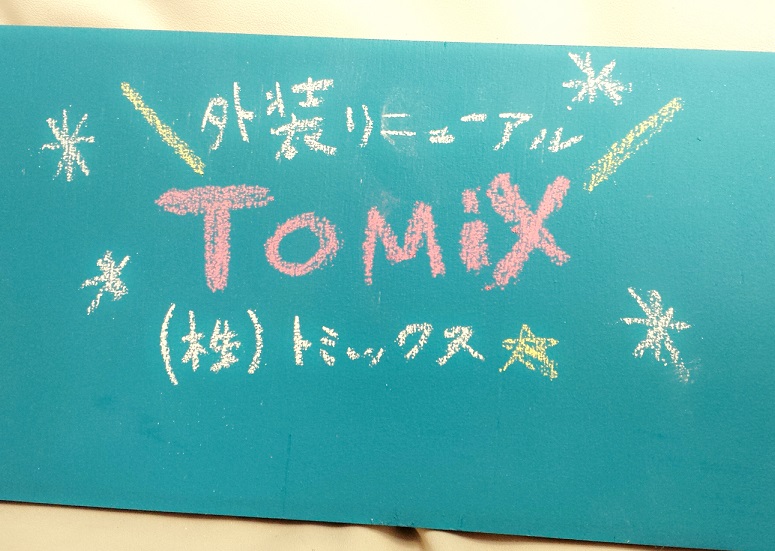 外装リニューアル
TOMiX
(株)トミックス